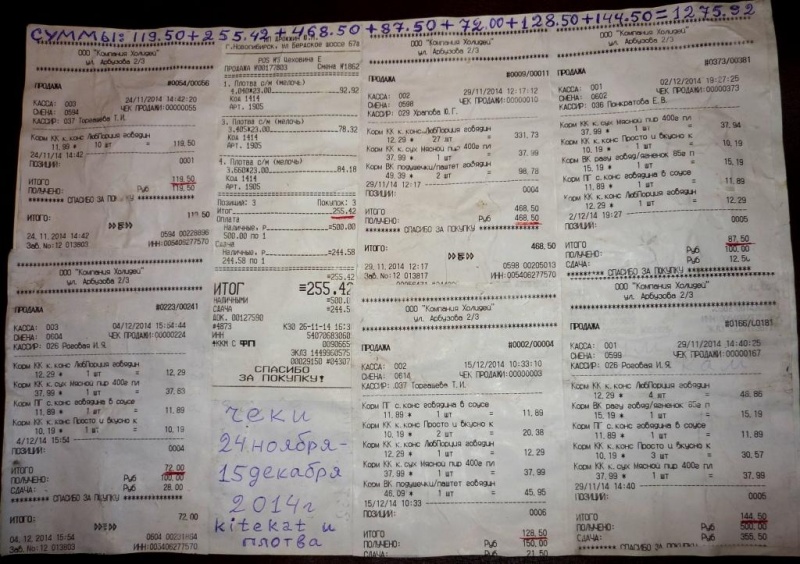 СУММЫ: 119.50+255.42+468.50+87.50+72.00+128.50+144.50=1275.92
ООО "Компания Холидей"
ул. Арбузова 2/3
ПРОДАЖА #0054/00056
КАССА: 003 24/11/2014 14:42:20
СМЕНА: 0594 ЧЕК ПРОДАЖИ:00000055
КАССИР: 037 Торгашева Т.И.
Корм КК к.конс ЛюбПорция говядин
11,99 * 10 шт = 119,50
24/11/2014 14:42
ПОЗИЦИИ: 0001
ИТОГО 119,50
ПОЛУЧЕНО: Руб 119,50
СПАСИБО ЗА ПОКУПКУ
ИТОГО: 119,50
24.11.2014 14:42 0594 00228896
Зав. No:12 013803 ИНН:005406277570
г.Новосибирск, ул Бердское шоссе 67а
POS #3 Чеховина Е
ПРОДАЖА #00177803 Смена #1862
1. Плотва с/м (мелочь)
4.040*23.00 92.92
Код 1414
АРТ. 1905
3. Плотва с/м (мелочь)
3.405*23.00 78.32
Код 1414
АРТ. 1905
4. Плотва с/м (мелочь)
3.660*23.00 84.18
Код 1414
АРТ. 1905
Позиций: 3 Покупок: 3
Итог 255.42
Оплата
Наличные, р =500.00
500.00 по 1
Сдача
Наличные, р =244.58
244.58 по 1
=255.42
ИТОГ =255.42
НАЛИЧНЫМИ
СДАЧА
ДОК. 00127590
#4873 К30 26-11-14
ИНН 54070683060
#ККМ С ФП
ЭКЛЗ 1449960575
00029150
СПАСИБО
ЗА ПОКУПКУ!
ООО "Компания Холидей"
ул. Арбузова 2/3
ПРОДАЖА #0009/00011
КАССА: 002 29/11/2014 12:17:12
СМЕНА: 0598 ЧЕК ПРОДАЖИ:00000010
КАССИР: 029 Храпова Ю.Г.
Корм КК к.конс ЛюбПорция говядин
12,29 * 27 шт = 331,73
Корм КК к. сух Мясной пир 400г пл
37,99 * 1 шт = 37,99
Корм ВК подушечки/паштет говядин
49,39 * 2 шт = 98,78
29/11/14 12:17
ПОЗИЦИИ: 0004
ИТОГО 468,50
ПОЛУЧЕНО: Руб 468,50
СПАСИБО ЗА ПОКУПКУ
ИТОГО: 468,50
29.11.2014 12:17 0598 00205013
Зав. No:12 013817 ИНН:005406277570
ООО "Компания Холидей"
ул. Арбузова 2/3
ПРОДАЖА #0373/00381
КАССА: 001 02/12/2014 19:27:25
СМЕНА: 0602 ЧЕК ПРОДАЖИ:00000373
КАССИР: 036 Понкратова Е.В.
Корм КК к. сух Мясной пир 400г пл
37,99 * 1 шт = 37,94
Корм КК к.конс Просто и вкусно к
10,19 * 1 шт = 10,19
Корм ВК рагу говяд/ягненок 85г п
15,19 * 1 шт = 15,19
Корм ПГ с.конс говядина в соусе
11,89 * 1 шт = 11,89
Корм КК к.конс ЛюбПорция говядин
12,29 * 1 шт = 12,29
2/12/14 19:27
ПОЗИЦИИ: 0005
ИТОГО 87,50
ПОЛУЧЕНО: Руб 100,00
СДАЧА: Руб 12,50
СПАСИБО ЗА ПОКУПКУ
ООО "Компания Холидей"
ул. Арбузова 2/3
ПРОДАЖА #0223/00241
КАССА: 003 04/12/2014 15:54:44
СМЕНА: 0604 ЧЕК ПРОДАЖИ:00000224
КАССИР: 026 Роговая И.Я.
Корм КК к.конс ЛюбПорция говядин
12,29 * 1 шт = 12,29
Корм КК к. сух Мясной пир 400г пл
37,99 * 1 шт = 37,63
Корм ПГ с.конс говядина в соусе
11,89 * 1 шт = 11,89
Корм КК к.конс Просто и вкусно к
10,19 * 1 шт = 10,19
4/12/14 15:54
ПОЗИЦИИ: 0004
ИТОГО 72,00
ПОЛУЧЕНО: Руб 100,00
СДАЧА: Руб 28,00
СПАСИБО ЗА ПОКУПКУ
ИТОГО: 72,00
04.12.2014 15:54
Зав. No:12 013803 ИНН:005406277570
чеки
24 ноября-
15 декабря
2014г
kitekat и
плотва
ООО "Компания Холидей"
ул. Арбузова 2/3
ПРОДАЖА #0002/00004
КАССА: 002 15/12/2014 10:33:10
СМЕНА: 0614 ЧЕК ПРОДАЖИ:00000003
КАССИР: 037 Торгашева Т.И.
Корм ПГ с.конс говядина в соусе
11,89 * 1 шт = 11,89
Корм КК к.конс Просто и вкусно к
10,19 * 2 шт = 20,38
Корм КК к.конс ЛюбПорция говядин
12,29 * 1 шт = 12,29
Корм КК к. сух Мясной пир 400г пл
37,99 * 1 шт = 37,99
Корм ВК подушечки/паштет говядин
46,09 * 1 шт = 45,95
15/12/14 10:33
ПОЗИЦИИ: 0006
ИТОГО 128,50
ПОЛУЧЕНО: Руб 150,00
СДАЧА: Руб 21,50
ООО "Компания Холидей"
ул. Арбузова 2/3
ПРОДАЖА #0166/L0181
КАССА: 001 29/11/2014 14:40:25
СМЕНА: 0599 ЧЕК ПРОДАЖИ:00000167
КАССИР: 026 Роговая И.Я.
Корм КК к.конс ЛюбПорция говядин
12,29 * 4 шт = 48,86
Корм ВК рагу говяд/ягненок 85г п
15,19 * 1 шт = 15,19
Корм ПГ с.конс говядина в соусе
11,89 * 1 шт = 11,89
Корм КК к.конс Просто и вкусно к
10,19 * 3 шт = 30,57
Корм КК к. сух Мясной пир 400г пл
37,99 * 1 шт = 37,99
29/11/14 14:40
ПОЗИЦИИ: 0005
ИТОГО 144,50
ПОЛУЧЕНО: Руб 500,00
СДАЧА: Руб 355,50